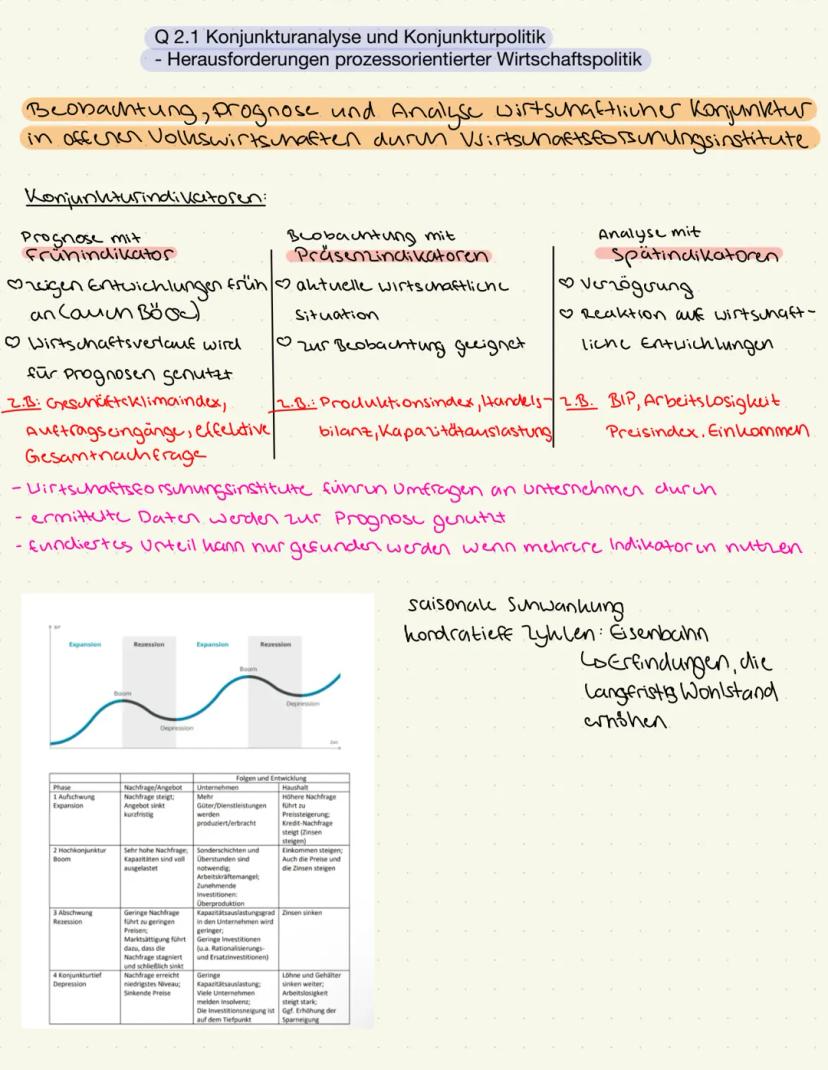 Q 2.1 Konjunkturanalyse und Konjunkturpolitik
- Herausforderungen prozessorientierter Wirtschaftspolitik
Beobachtung, Prognose und Analyse wirtschaftlicher Konjunktur
in offenen Volkswirtschaften durch Wirtschaftsforschungsinstitute
Konjunkturindikatoren:
Prognose mit
Frühindikator
♡ zeigen Entwicklungen früh
an (auch Böse)
♡ Wirtschaftsverlauf wird
für Prognosen genutzt
z.B: Geschäftsklimaindex,
Auftragseingänge, effektive
Gesamtnachfrage
Beobachtung mit
Präsenzindikatoren
♡ aktuelle wirtschaftliche
Situation
♡ zur Beobachtung geeignet
z.B.: Produktionsindex, Handels-
bilanz, Kapazitätauslastung
Analyse mit
Spätindikatoren
♡ Verzögerung
♡ Reaktion auf wirtschaft-
liche Entwicklungen
z.B. BIP, Arbeitslosigkeit
Preisindex, Einkommen
- Wirtschaftsforschungsinstitute führen Umfragen an unternehmen durch
- ermittelte Daten werden zur Prognose genutzt
- fundiertes Urteil kann nur gefunden werden wenn mehrere Indikatoren nutzen
saisonale Schwankung
kondratieff Zyklen: Eisenbahn
↳ Erfindungen, die
langfristig Wohlstand
erhöhen
BIP
Expansion Rezession Expansion Rezession
Boom
Boom
Depression
Depression
Zeit
Folgen und Entwicklung
Phase Nachfrage/Angebot Unternehmen Haushalt
1 Aufschwung
Expansion
Nachfrage steigt;
Angebot sinkt
kurzfristig
Mehr
Güter/Dienstleistungen
werden
produziert/erbracht
Höhere Nachfrage
führt zu
Preissteigerung;
Kredit-Nachfrage
steigt (Zinsen
steigen)
2 Hochkonjunktur
Boom
Sehr hohe Nachfrage;
Kapazitäten sind voll
ausgelastet
Sonderschichten und
Überstunden sind
notwendig;
Arbeitskräftemangel;
Zunehmende
Investitionen:
Überproduktion
Einkommen steigen;
Auch die Preise und
die Zinsen steigen
3 Abschwung
Rezession
Geringe Nachfrage
führt zu geringen
Preisen;
Marktsättigung führt
dazu, dass die
Nachfrage stagniert
und schließlich sinkt
Kapazitätsauslastungsgrad
in den Unternehmen wird
geringer;
Geringe Investitionen
(u.a. Rationalisierungs-
und Ersatzinvestitionen)
Zinsen sinken
4 Konjunkturtief
Depression
Nachfrage erreicht
niedrigstes Niveau;
Sinkende Preise
Geringe
Kapazitätsauslastung;
Viele Unternehmen
melden Insolvenz;
Die Investitionsneigung ist
auf dem Tiefpunkt
Löhne und Gehälter
sinken weiter;
Arbeitslosigkeit
steigt stark;
Ggf. Erhöhung der
Sparneigung